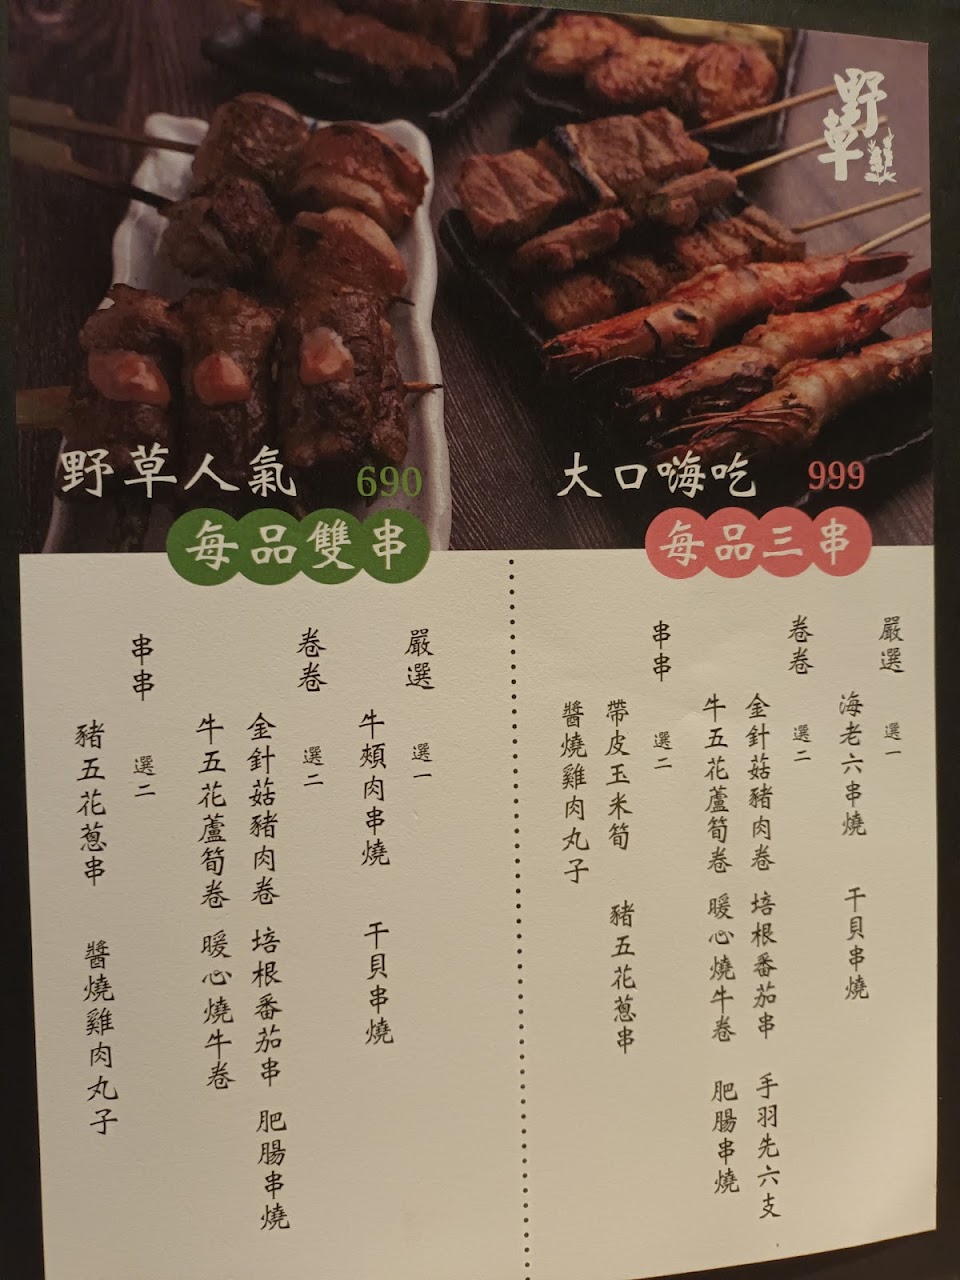 野草
野草人氣 690
每品雙串
嚴選 選一
牛頰肉串燒 干貝串燒
卷卷 選二
金針菇豬肉卷 培根番茄串 肥腸串燒
牛五花蘆筍卷 暖心燒牛卷
串串 選二
豬五花蔥串 醬燒雞肉丸子
大口嗨吃 999
每品三串
嚴選 選一
海老六串燒 干貝串燒
卷卷 選二
金針菇豬肉卷 培根番茄串 手羽先六支
牛五花蘆筍卷 暖心燒牛卷 肥腸串燒
串串 選二
帶皮玉米筍 豬五花蔥串
醬燒雞肉丸子